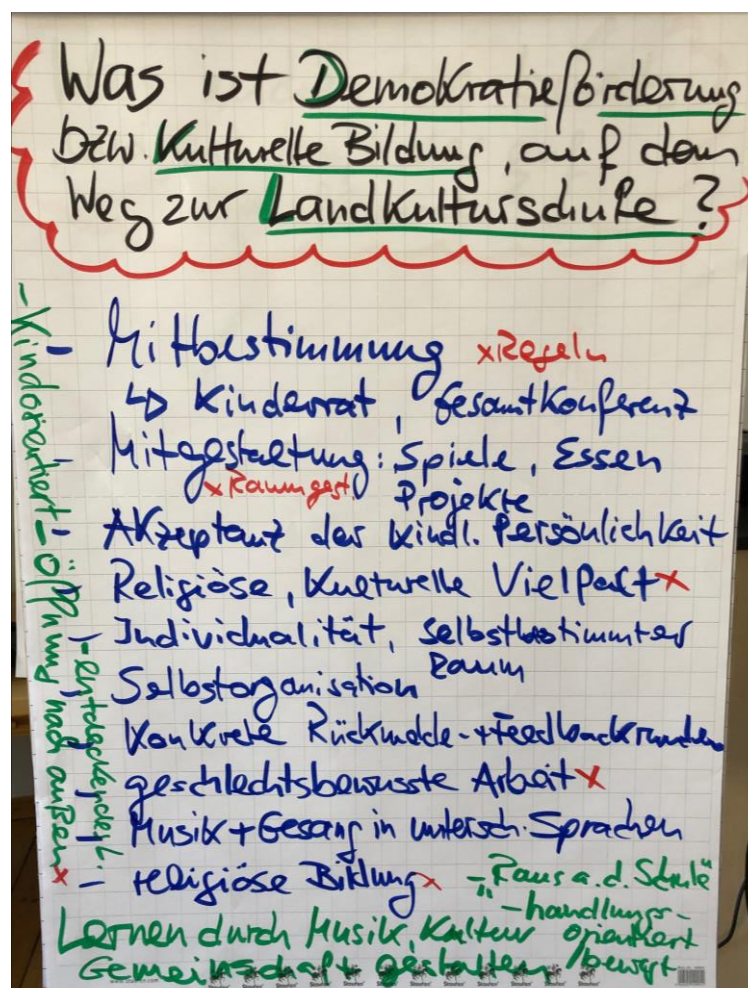 Was ist Demokratieförderung
bzw. Kulturelle Bildung, auf dem
Weg zur Landkulturschule?
- Mitbestimmung x Regeln
↳ Kinderrat, Gesamtkonferenz
- Mitgestaltung: Spiele, Essen
x Raumgest. Projekte
- Akzeptanz der kindl. Persönlichkeit
- Religiöse, kulturelle Vielfalt x
- Individualität, selbstbestimmter
Raum
- Selbstorganisation
- Konkrete Rückmelde- + Feedbackrunden
- geschlechtsbewusste Arbeit x
- Musik + Gesang in untersch. Sprachen
- religiöse Bildung x
- Kindorientiert
- Öffnung nach außen x
- entdeckendes L.
- Raus a. d. Schule
- handlungs-
orientiert
/bewegt
Lernen durch Musik, Kultur
Gemeinschaft gestalten